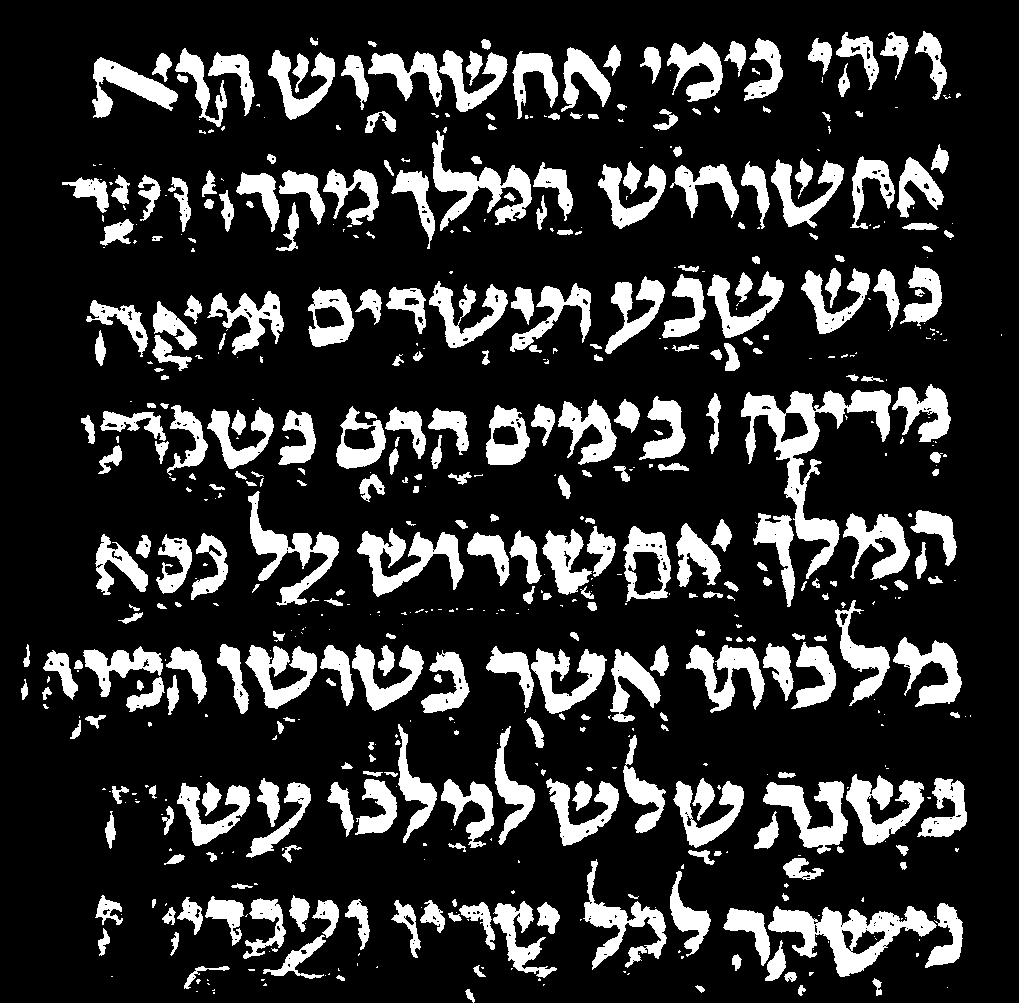 ויהי בימי אחשורוש הוא
אחשורוש המלך מהדו ועד
כוש שבע ועשרים ומאה
מדינה ׀ בימים ההם כשבת
המלך אחשורוש על כסא
מלכותו אשר בשושן הבירה
בשנת שלש למלכו עשה
משתה לכל שריו ועבדיו